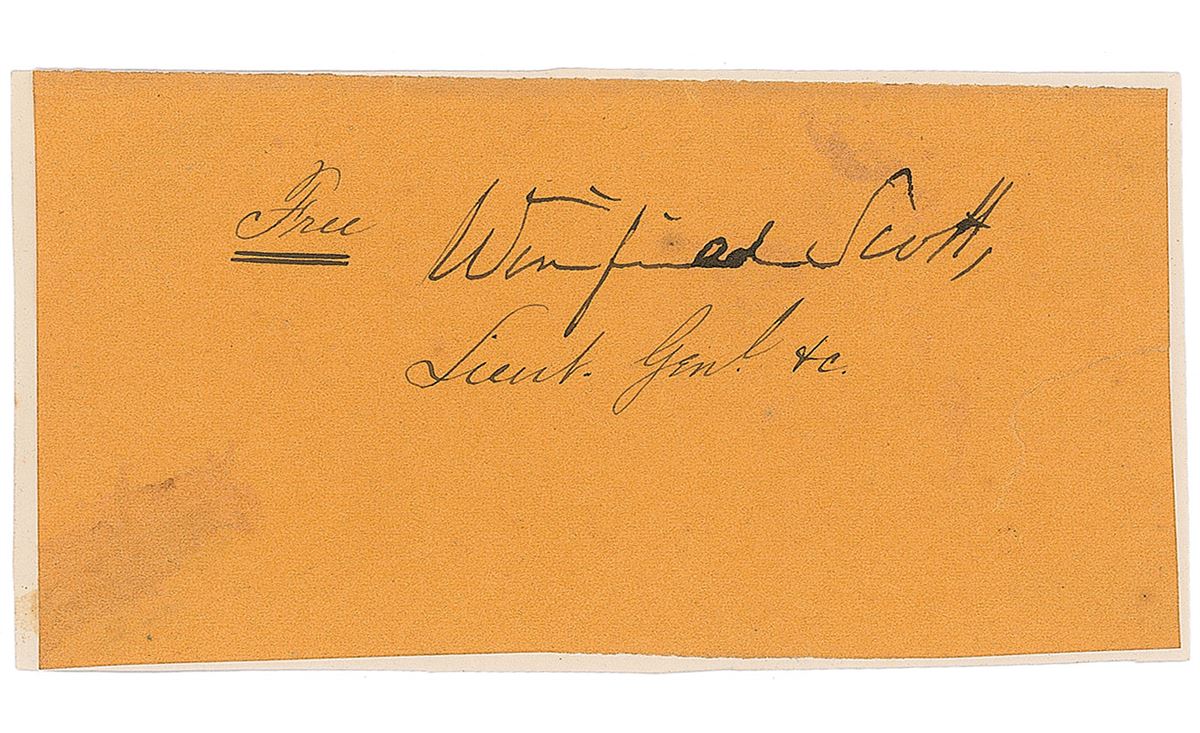 Free Winfield Scott,
Lieut. Genl. &c.